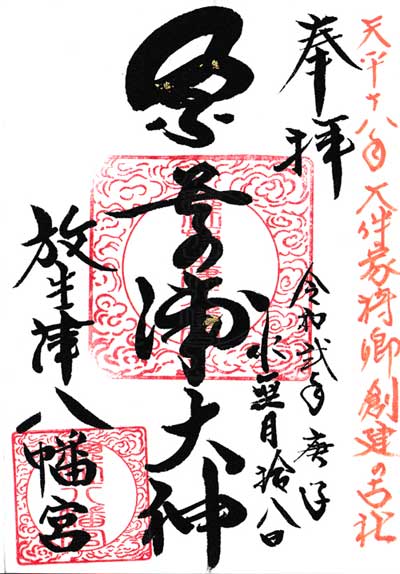 天平十八年 大伴家持卿 創建の古社
奉拝
令和弐年 庚子
水無月拾八日
奈呉の浦大神
放生津八幡宮